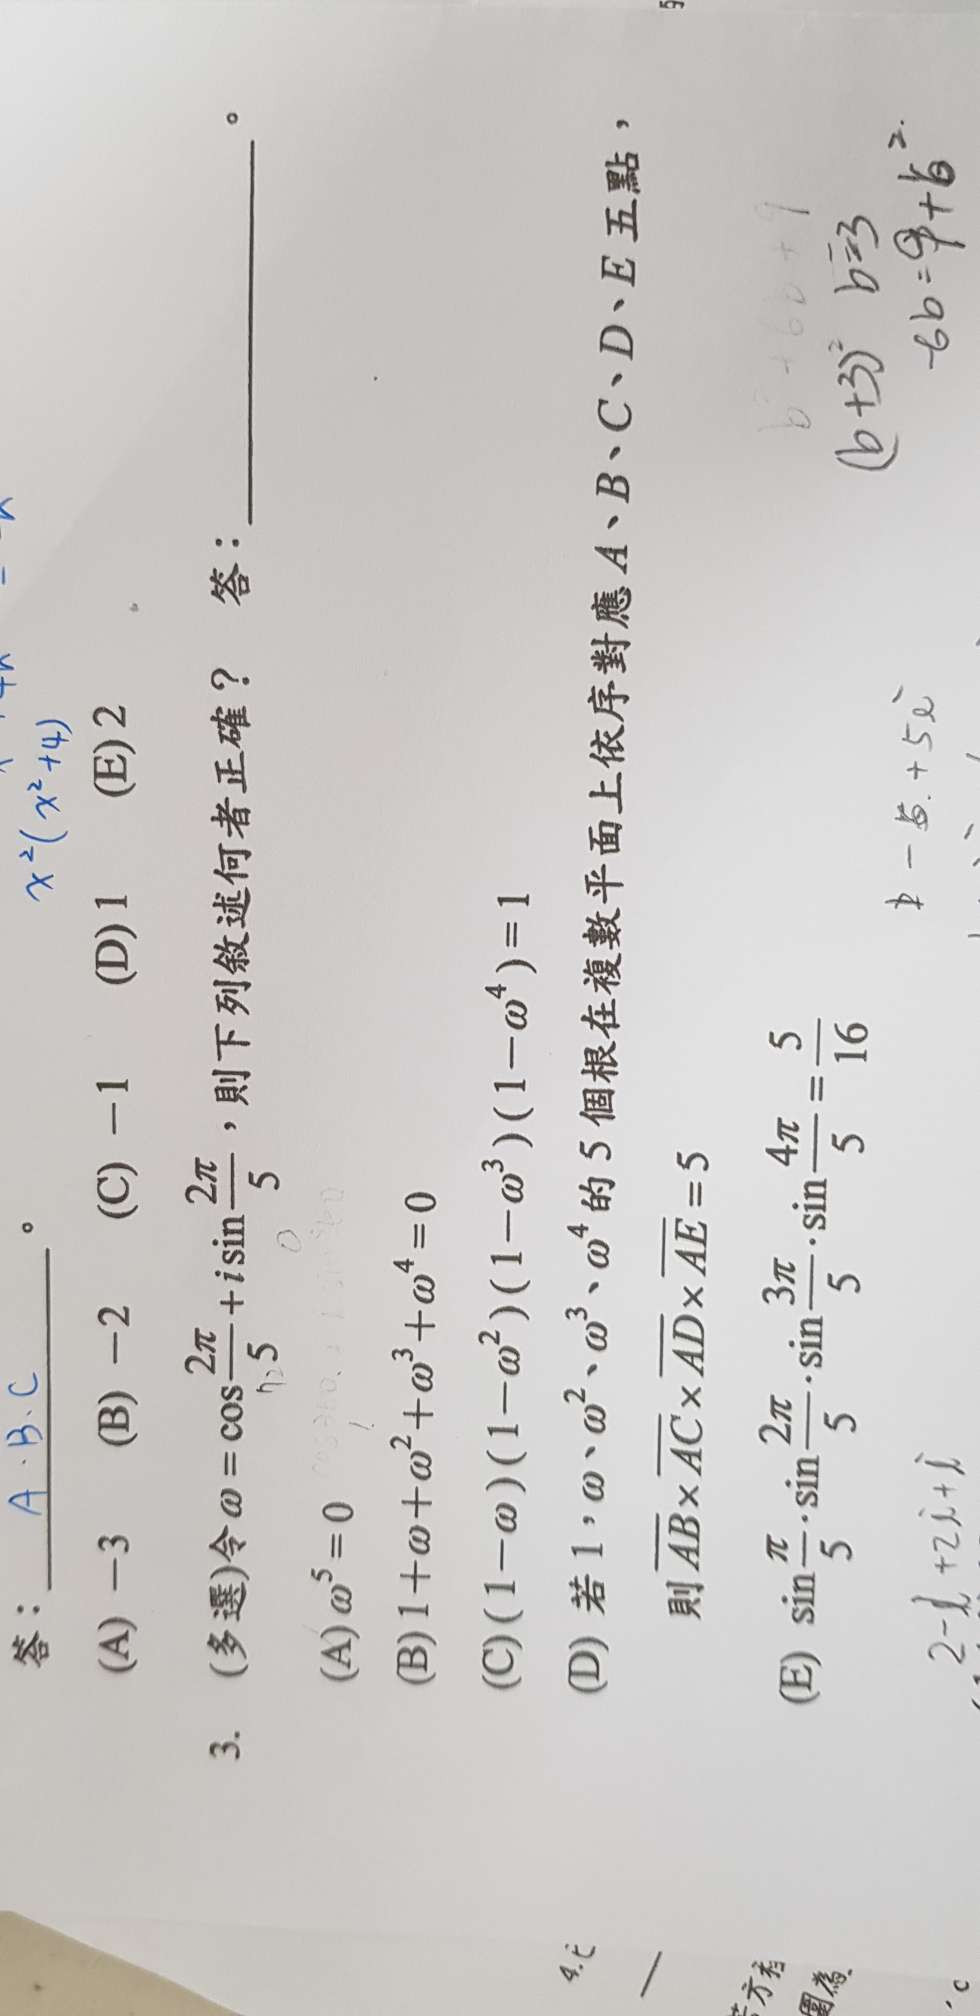 x²(x²+4)
答：A.B.C。
(A) −3 (B) −2 (C) −1 (D) 1 (E) 2
3. (多選)令ω=cos2π/5+isin2π/5，則下列敘述何者正確？ 答：______。
(A) ω⁵=0
(B) 1+ω+ω²+ω³+ω⁴=0
(C) (1−ω)(1−ω²)(1−ω³)(1−ω⁴)=1
(D) 若1，ω、ω²、ω³、ω⁴的5個根在複數平面上依序對應A、B、C、D、E五點，
則AB×AC×AD×AE=5
(E) sinπ/5·sin2π/5·sin3π/5·sin4π/5=5/16
(b+3)² b=3
-6b=9+b²